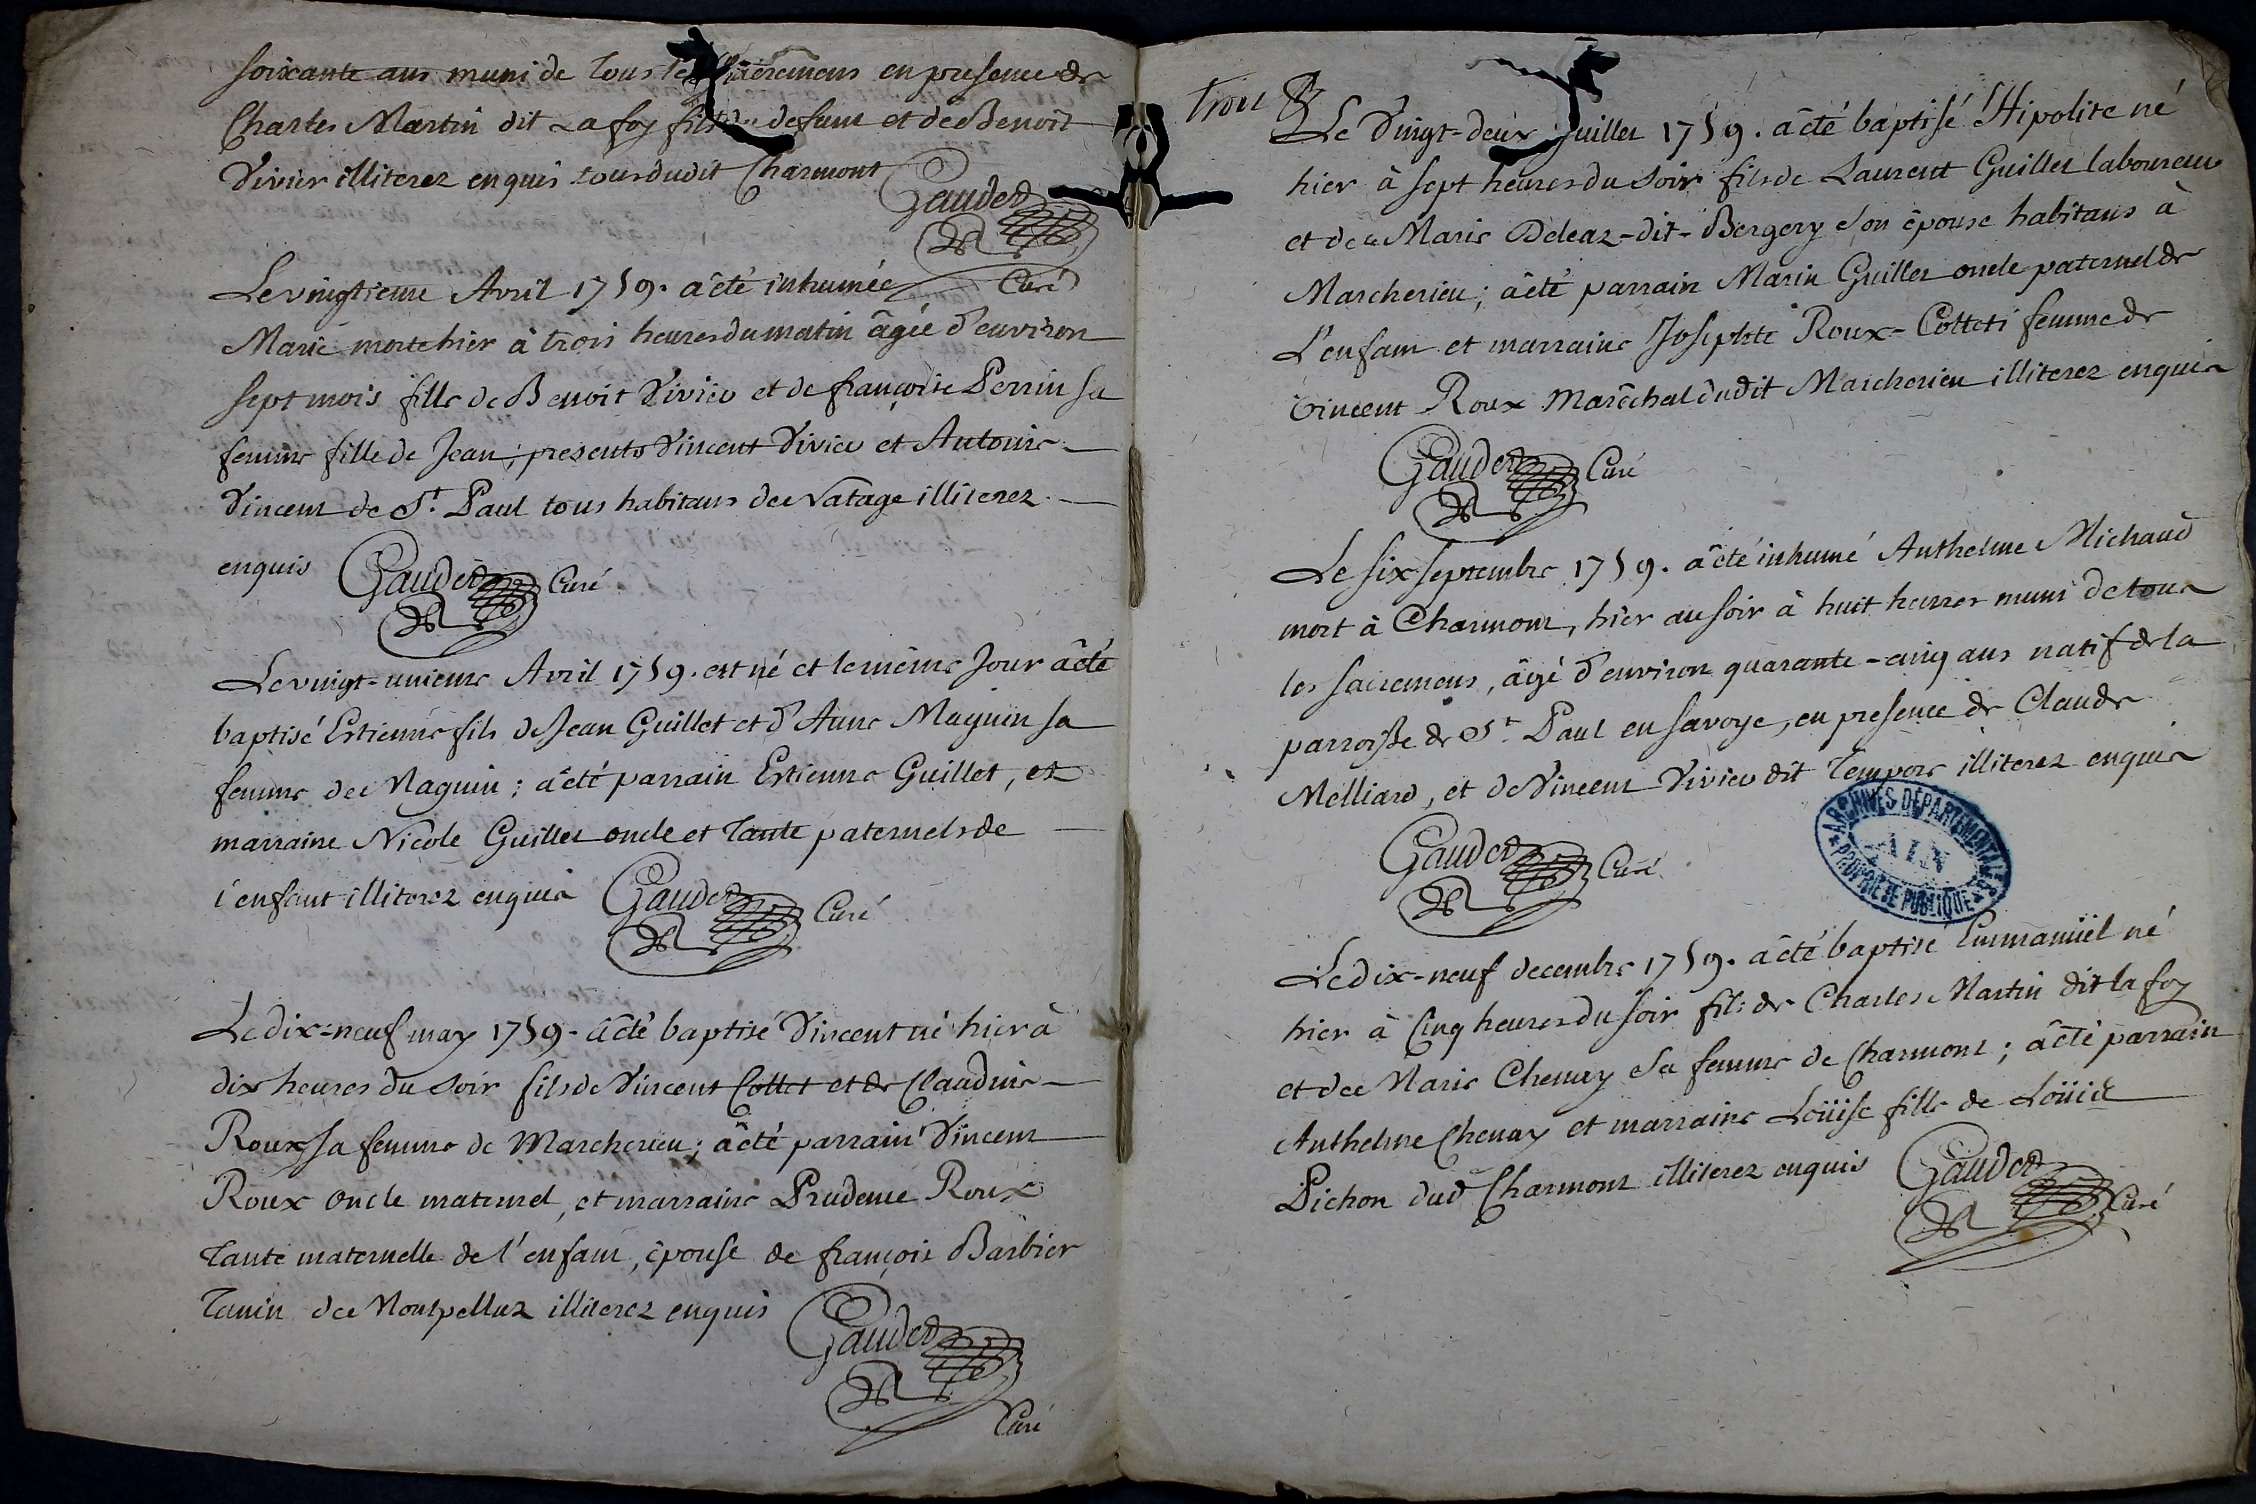 soixante ans muni de tous les sacremens en presence de
Charles Martin dit La foy fils du defunt et de Benoit
Vivier illiterez enquis tous dudit Charmont
Gaudet
Curé
Le vingtieme Avril 1759. a êté inhumée
Marie morte hier à trois heures du matin âgée d'environ
sept mois fille de Benoit Vivier et de françoise Perrin sa
femme fille de Jean; presents Vincent Vivier et Antoine
Vincent de St. Paul tous habitans de Natage illiterez
enquis Gaudet Curé
Le vingt-unieme Avril 1759. est né et le même Jour a êté
baptisé Estienne fils de Jean Guillet et d'Anne Maguin sa
femme de Naguin; a êté parrain Estienne Guillet, et
marraine Nicole Guillet oncle et Tante paternels de
l'enfant illiterez enquis Gaudet Curé
Le dix-neuf may 1759. a êté baptisé Vincent né hier à
dix heures du soir fils de Vincent Collet et de Claudine
Roux sa femme de Marcherieu; a êté parrain Vincent
Roux oncle maternel, et marraine Prudence Roux
Tante maternelle de l'enfant, épouse de françois Barbier
Tanin de Montpellaz illiterez enquis
Gaudet
Curé
trois
Le Vingt-deux Juillet 1759. a êté baptisé Hipolite né
hier à sept heures du soir fils de Laurent Guillet laboureur
et de Marie Deleaz-dit-Bergery son épouse habitans à
Marcherieu; a êté parrain Marin Guillet oncle paternel de
L'enfant et marraine Josephte Roux-Cottet femme de
Vincent Roux Maréchal dudit Marcherieu illiterez enquis
Gaudet Curé
Le six septembre 1759. a êté inhumé Anthelme Michaud
mort à Charmont, hier au soir à huit heures muni de tous
les sacremens, âgé d'environ quarante-cinq ans natif de la
parroisse de St. Paul en savoye, en presence de Claude
Melliard, et de Vincent Vivier dit Tempore illiterez enquis
Gaudet Curé
ARCHIVES DÉPARTEMENTALES
AIN
PROPRIÉTÉ PUBLIQUE
Le dix-neuf decembre 1759. a êté baptisé Emmanüel né
hier à Cinq heures du soir fils de Charles Martin dit la foy
et de Marie Chenay sa femme de Charmont; a êté parrain
Anthelme Chenay et marraine Loüise fille de Loüis
Pichon dud Charmont illiterez enquis Gaudet
Curé